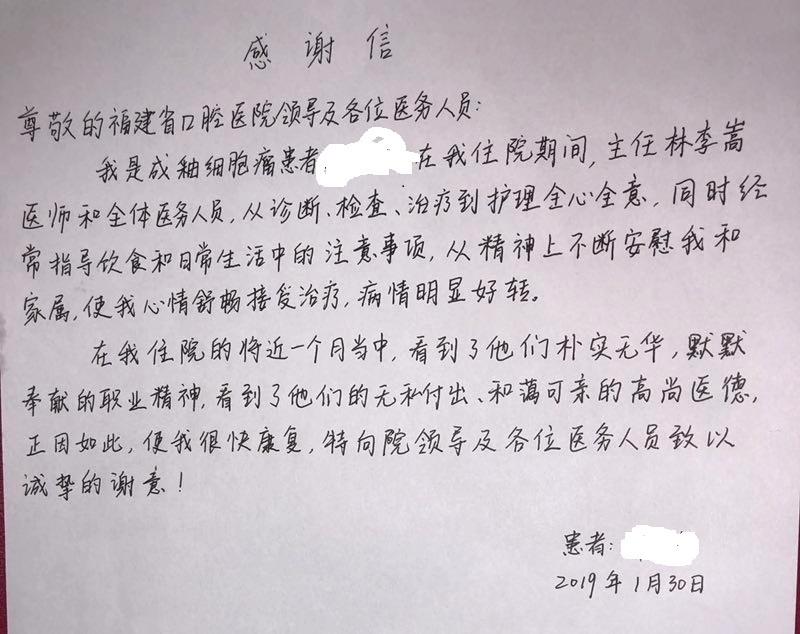 感谢信
尊敬的福建省口腔医院领导及各位医务人员:
我是成釉细胞瘤患者 在我住院期间,主任林李嵩
医师和全体医务人员,从诊断、检查、治疗到护理全心全意,同时经
常指导饮食和日常生活中的注意事项,从精神上不断安慰我和
家属,使我心情舒畅接受治疗,病情明显好转。
在我住院的将近一个月当中,看到了他们朴实无华,默默
奉献的职业精神,看到了他们的无私付出、和蔼可亲的高尚医德,
正因如此,使我很快康复,特向院领导及各位医务人员致以
诚挚的谢意!
患者:
2019年1月30日